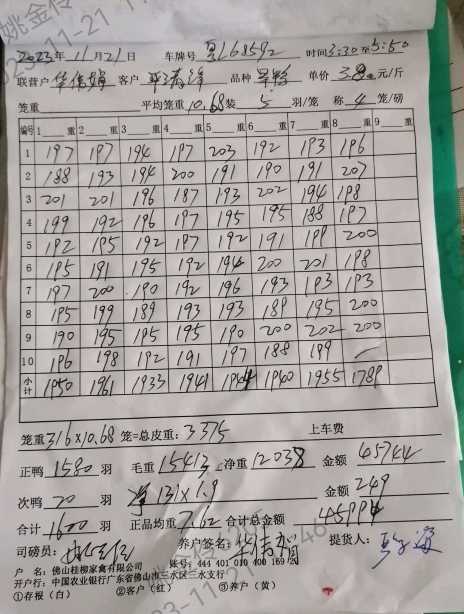 2023年 11月21日 车牌号 时间3:30至5:50
联营户 客户 品种 单价 元/斤
笼重 平均笼重10.68 装 5 羽/笼 称 4 笼/磅
编号 1 重 2 重 3 重 4 重 5 重 6 重 7 重 8 重 9 重
1 197 197 194 197 203 192 193 196
2 188 193 194 200 191 190 191 207
3 201 201 196 187 193 202 194 198
4 199 192 196 197 195 195 188 197
5 192 195 192 197 192 191 199 200
6 195 191 195 192 194 200 201 198
7 197 200 190 192 196 193 193 193
8 195 199 189 193 193 189 195 200
9 190 195 195 195 190 200 202 200
10 196 198 192 191 197 188 199
小计 1950 1961 1933 1941 1944 1940 1955 1789
笼重316×10.68 笼=总皮重: 3375 上车费
正鸭 1580 羽 毛重 15413 净重 12038 金额 45744
次鸭 20 羽 131×1.9 金额 249
合计 1600 羽 正品均重 7.62 合计总金额
司磅员: 养户签名: 提货人:
户 名: 佛山桂柳家禽有限公司 账号: 444 401 010 400 169 20
开户行: 中国农业银行广东省佛山市三水区三水支行
①存根(白) ②客户(红) ③养户(黄)